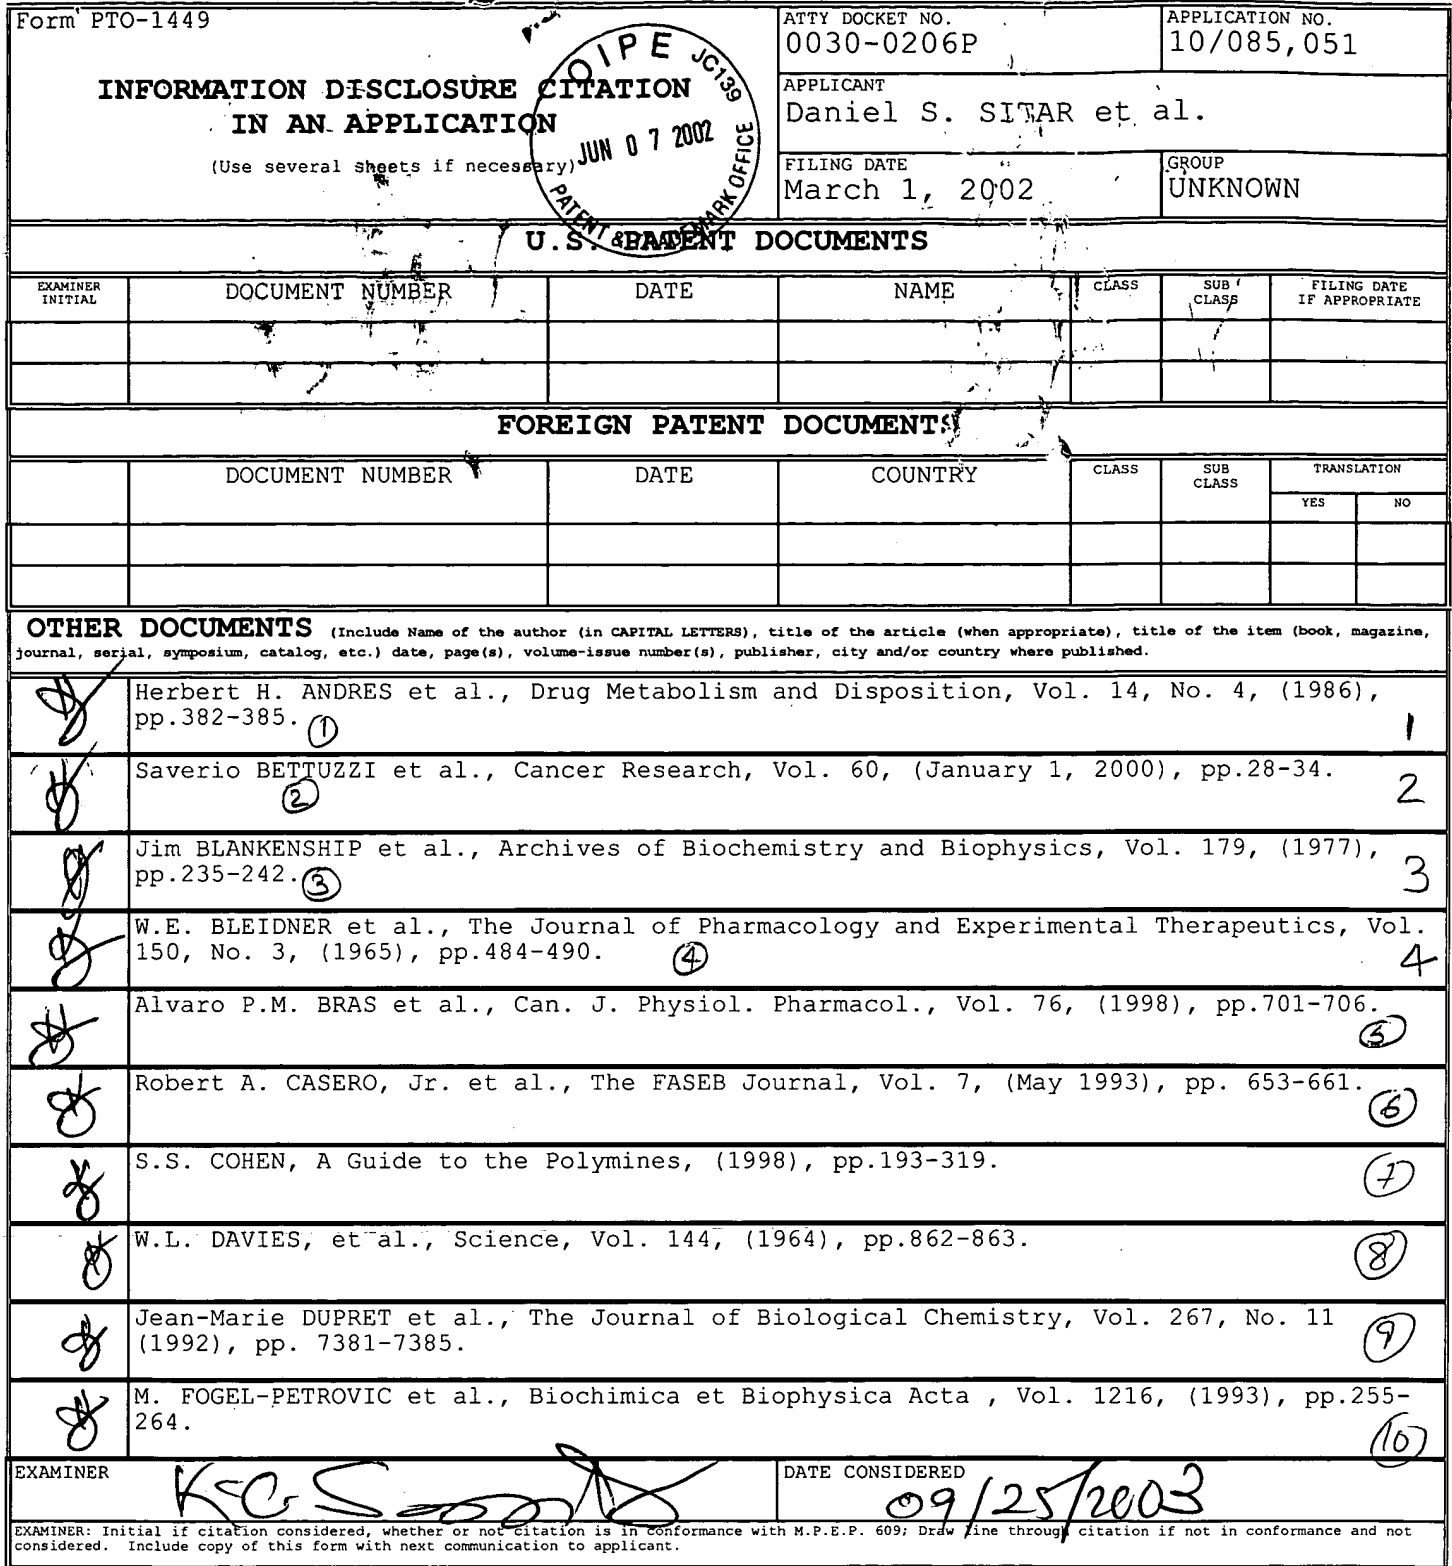 Form PTO-1449
INFORMATION DISCLOSURE CITATION
IN AN APPLICATION
(Use several sheets if necessary)
OIPE JC139
JUN 07 2002
PATENT & TRADEMARK OFFICE
ATTY DOCKET NO.
0030-0206P
APPLICATION NO.
10/085,051
APPLICANT
Daniel S. SITAR et al.
FILING DATE
March 1, 2002
GROUP
UNKNOWN
U.S. PATENT DOCUMENTS
EXAMINER INITIAL DOCUMENT NUMBER DATE NAME CLASS SUB CLASS FILING DATE IF APPROPRIATE
FOREIGN PATENT DOCUMENTS
DOCUMENT NUMBER DATE COUNTRY CLASS SUB CLASS TRANSLATION
YES NO
OTHER DOCUMENTS (Include Name of the author (in CAPITAL LETTERS), title of the article (when appropriate), title of the item (book, magazine,
journal, serial, symposium, catalog, etc.) date, page(s), volume-issue number(s), publisher, city and/or country where published.
Herbert H. ANDRES et al., Drug Metabolism and Disposition, Vol. 14, No. 4, (1986),
pp.382-385. 1 1
Saverio BETTUZZI et al., Cancer Research, Vol. 60, (January 1, 2000), pp.28-34.
2 2
Jim BLANKENSHIP et al., Archives of Biochemistry and Biophysics, Vol. 179, (1977),
pp.235-242. 3 3
W.E. BLEIDNER et al., The Journal of Pharmacology and Experimental Therapeutics, Vol.
150, No. 3, (1965), pp.484-490. 4 4
Alvaro P.M. BRAS et al., Can. J. Physiol. Pharmacol., Vol. 76, (1998), pp.701-706.
5
Robert A. CASERO, Jr. et al., The FASEB Journal, Vol. 7, (May 1993), pp. 653-661.
6
S.S. COHEN, A Guide to the Polymines, (1998), pp.193-319.
7
W.L. DAVIES, et al., Science, Vol. 144, (1964), pp.862-863.
8
Jean-Marie DUPRET et al., The Journal of Biological Chemistry, Vol. 267, No. 11
(1992), pp. 7381-7385. 9
M. FOGEL-PETROVIC et al., Biochimica et Biophysica Acta , Vol. 1216, (1993), pp.255-
264. 10
EXAMINER
DATE CONSIDERED
09/25/2003
EXAMINER: Initial if citation considered, whether or not citation is in conformance with M.P.E.P. 609; Draw line through citation if not in conformance and not
considered. Include copy of this form with next communication to applicant.